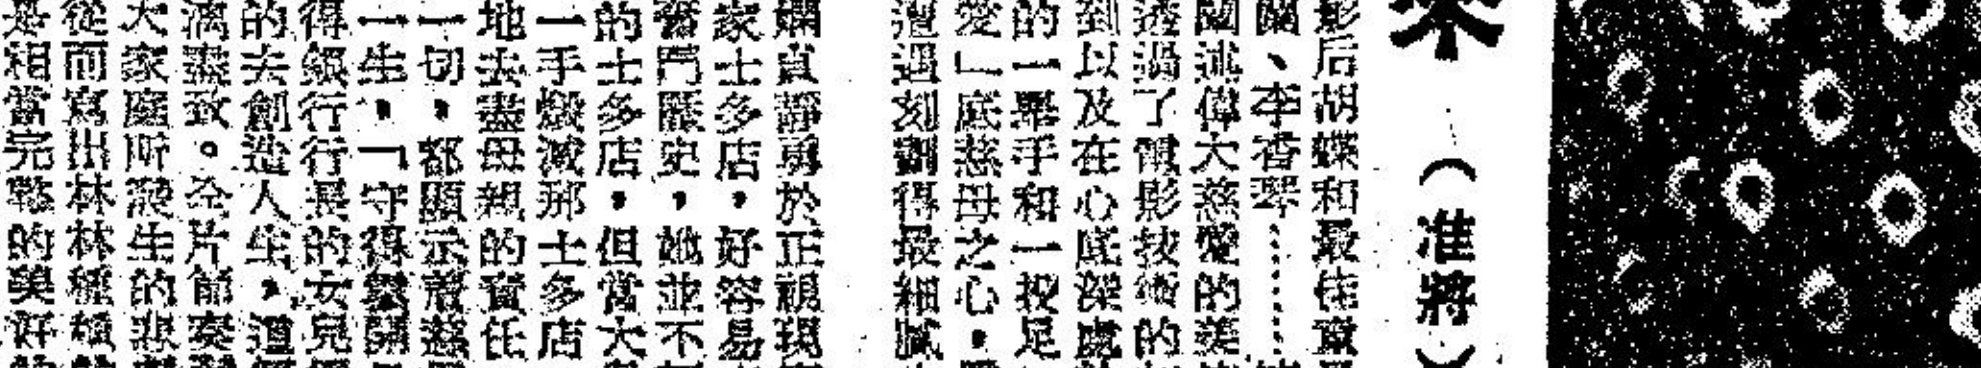 來
(准將)
影后胡蝶和最佳童星
蘭、李香琴……
闡述偉大慈愛的美
透過了電影技術的
到以及在心底深處
的一舉手和一投足
愛」底慈母之心,
遭遇刻劃得最細膩
斕真靜勇於正視現
家士多店,好容易
奮鬥歷史,她並不
的士多店,但當大
一手燬滅那士多店
地去盡母親的責任
一切,都顯示着慈
一生,「守得雲開
得銀行行長的女兒
的去創造人生,道
漓盡致。全片節奏
大家庭所發生的悲
從而寫出林林種種
是相當完整的美好